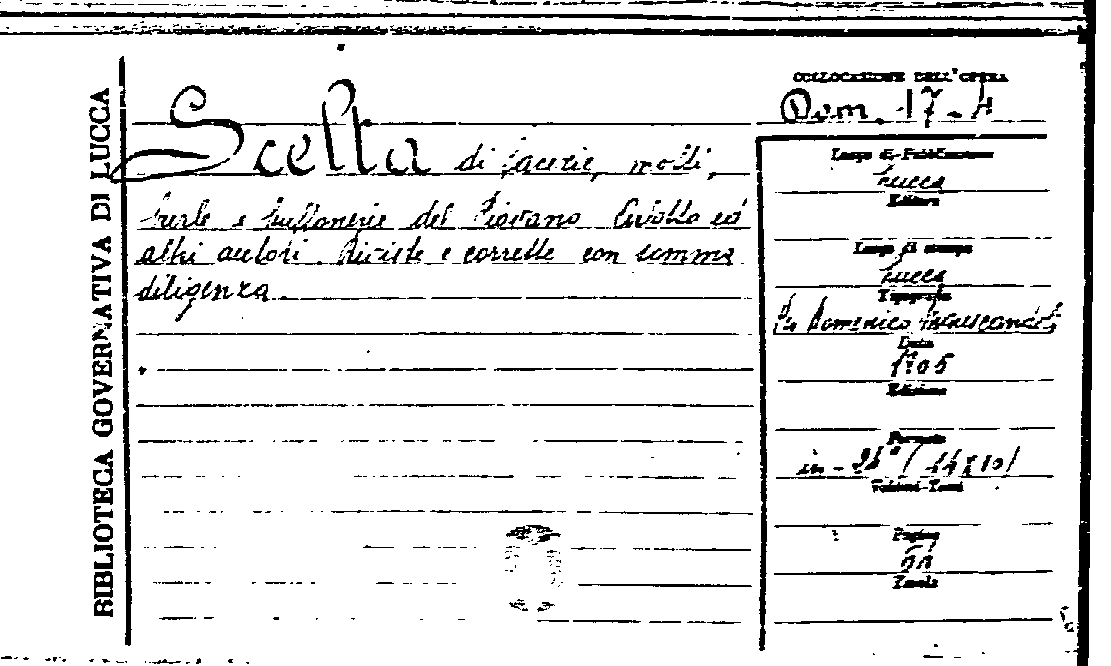 BIBLIOTECA GOVERNATIVA DI LUCCA
Scelta di facezie, motti,
burle e buffonerie del Piovano Arlotto ed
altri autori. Riviste e corrette con somma
diligenza
COLLOCAZIONE DELL'OPERA
Dom. 17-4
Luogo di Pubblicazione
Lucca
Editore
Luogo di stampa
Lucca
Tipografia
Domenico
Data
1705
Edizione
Formato
in-24° (14x10)
Volumi-Tomi
Pagine
Tavole